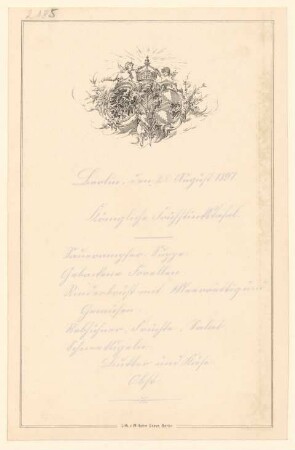 2.185.
Berlin, den August 1897.
Königliche Frühstückstafel.
Sauerampfer-Suppe
Gebackene Forellen
Rinderbrust mit Meerrettig und
Gemüsen
Rebhühner, Früchte, Salat
Butter und Käse
Obst.